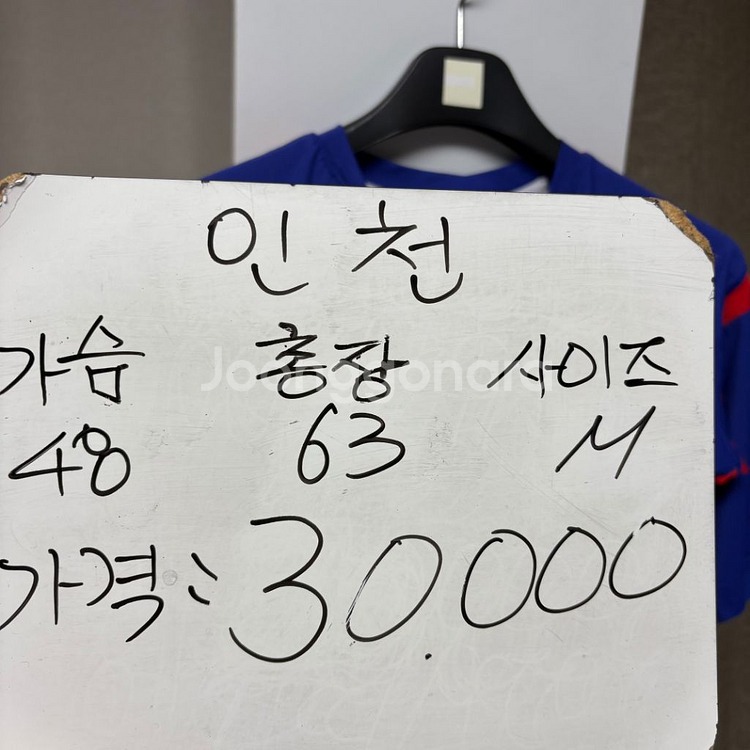 인천
가슴 총장 사이즈
48 63 M
가격: 30.000
Joonggonara